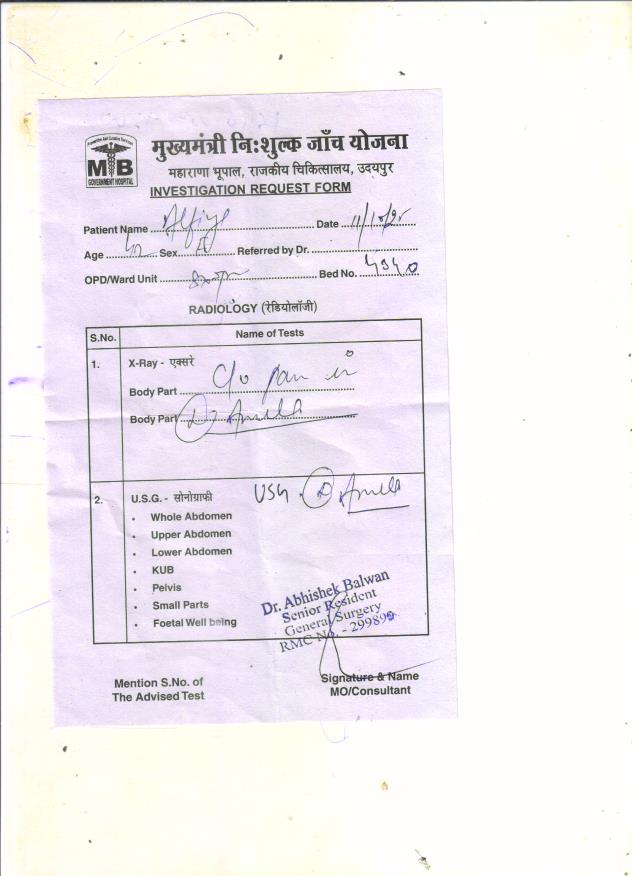 Preventive And Curative Services
MB
GOVERNMENT HOSPITAL
मुख्यमंत्री निःशुल्क जाँच योजना
महाराणा भूपाल, राजकीय चिकित्सालय, उदयपुर
INVESTIGATION REQUEST FORM
Patient Name Date
Age Sex Referred by Dr.
OPD/Ward Unit Bed No.
RADIOLOGY (रेडियोलॉजी)
S.No. Name of Tests
1. X-Ray - एक्सरे
C/o pain in
Body Part
Body Part
2. U.S.G.- सोनोग्राफी USG
• Whole Abdomen
• Upper Abdomen
• Lower Abdomen
• KUB
• Pelvis
• Small Parts
• Foetal Well being
Dr. Abhishek Balwan
Senior Resident
General Surgery
RMC No. - 299899
Mention S.No. of
The Advised Test
Signature & Name
MO/Consultant